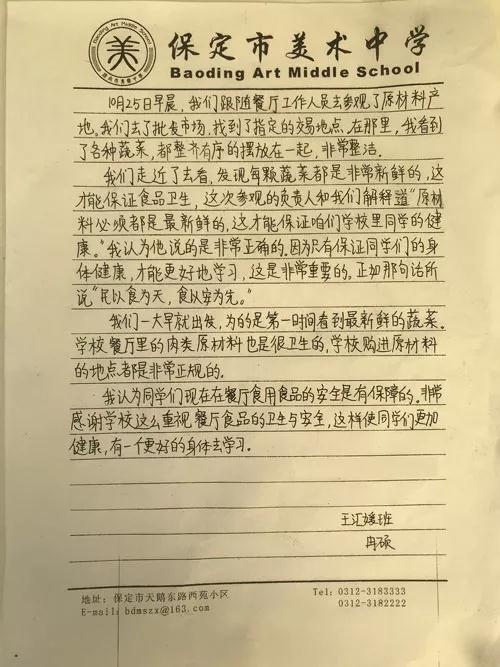 Baoding Art Middle School
美
保定市美术中学
Baoding Art Middle School
10月25日早晨，我们跟随餐厅工作人员去参观了原材料产
地。我们去了批发市场，找到了指定的交易地点。在那里，我看到
了各种蔬菜，都整齐有序的摆放在一起，非常整洁。
我们走近了去看，发现每颗蔬菜都是非常新鲜的，这
才能保证食品卫生，这次参观的负责人和我们解释道“原材
料必须都是最新鲜的，这才能保证咱们学校里同学的健
康。”我认为他说的是非常正确的。因为只有保证同学们的身
体健康，才能更好地学习，这是非常重要的。正如那句话所
说“民以食为天，食以安为先。”
我们一大早就出发，为的是第一时间看到最新鲜的蔬菜。
学校餐厅里的肉类原材料也是很卫生的，学校购进原材料
的地点都是非常正规的。
我认为同学们现在在餐厅食用食品的安全是有保障的。非常
感谢学校这么重视餐厅食品的卫生与安全，这样使同学们更加
健康，有一个更好的身体去学习。
王汇媛班
冉硕
地址：保定市天鹅东路西苑小区
Tel：0312-3183333
E-mail：bdmszx@163.com
0312-3182222